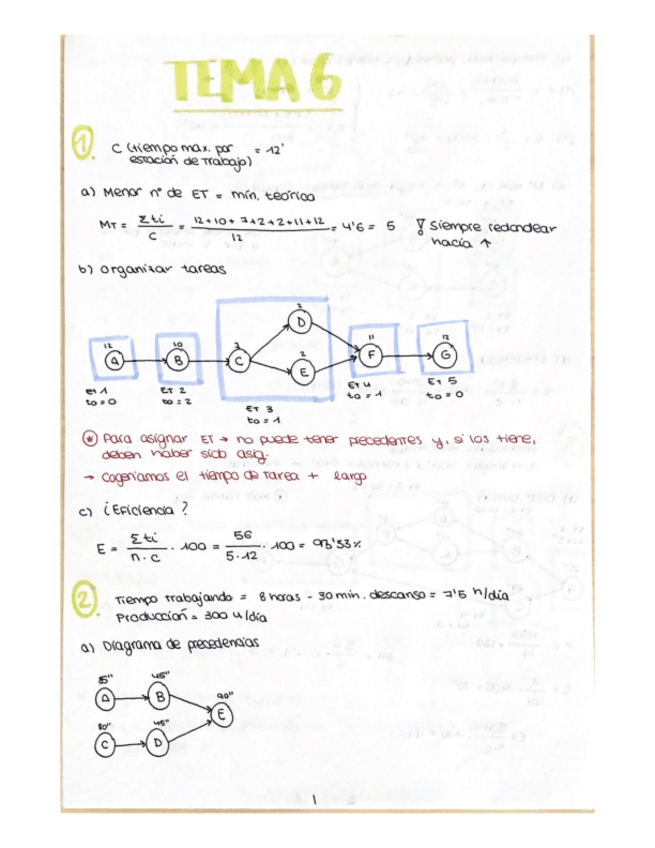 TEMA 6
1.
C (tiempo max. por = 12'
estación de trabajo)
a) Menor nº de ET = mín. teórico
MT = Σti / C = 12+10+7+2+2+11+12 / 12 = 4'6 = 5 ! siempre redondear
hacia ↑
b) organizar tareas
12 10 3 2 2 11 12
A B C D E F G
ET 1 ET 2 ET 3 ET 4 ET 5
to = 0 to = 2 to = 1 to = 1 to = 0
* Para asignar ET → no puede tener precedentes y, si los tiene,
deben haber sido asig.
→ cogeríamos el tiempo de tarea + largo
c) ¿Eficiencia?
E = Σti / n·c · 100 = 56 / 5·12 · 100 = 93'33%
2.
Tiempo trabajando = 8 horas - 30 min. descanso = 7'5 h/día
Producción = 300 u/día
a) Diagrama de precedencias
45" 90"
A B E
80" 45"
C D
1